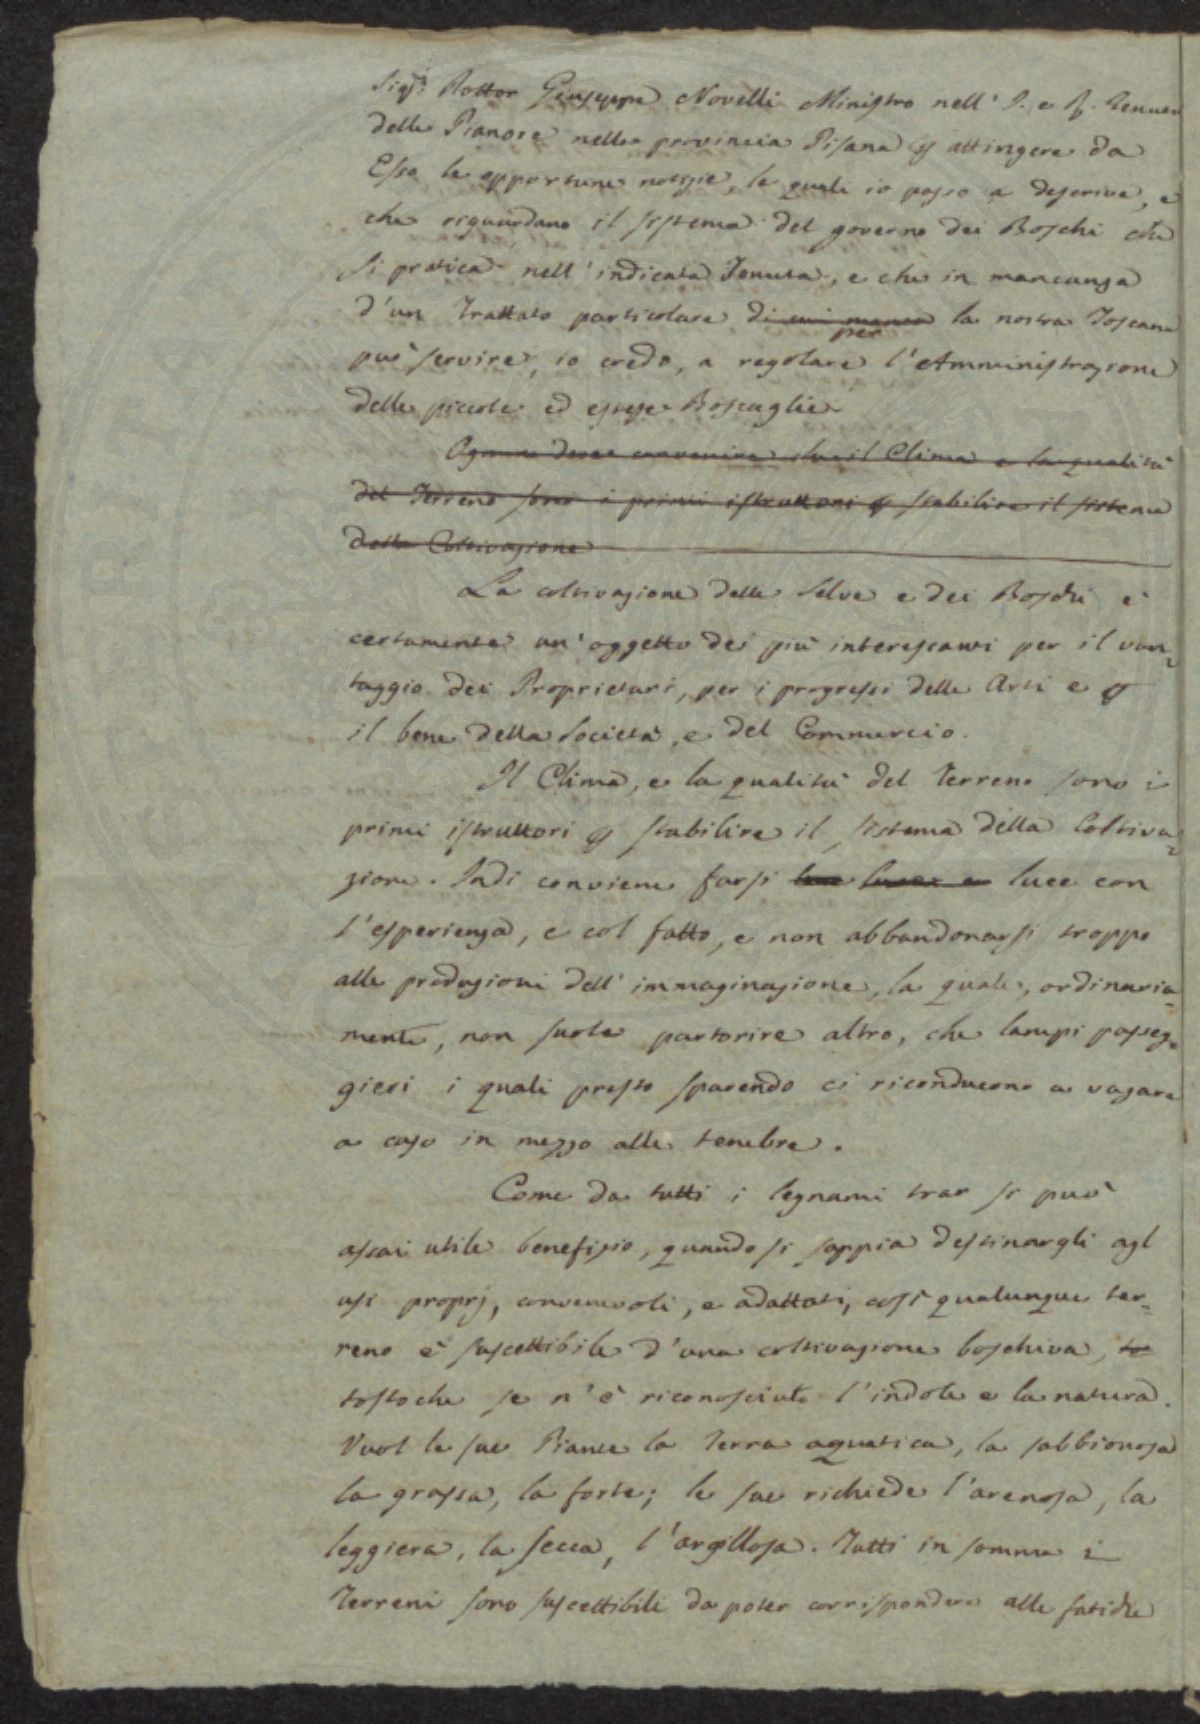 Sigr. Dottor Giuseppe Novelli Ministro nell' I. e R. Tenuta
delle Pianore nella provincia Pisana p attingere da
Esso le opportune notizie, le quali io passo a descrive, e
che riguardano il sistema del governo dei Boschi che
si pratica nell' indicata Tenuta, e che in mancanza
d'un Trattato particolare di cui manca per la nostra Toscana
può servire, io credo, a regolare l'Amministrazione
delle piccole ed estese Boscaglie.
Ognuno deve convenire che il Clima e la qualità
del Terreno sono i primi istruttori p stabilire il sistema
della Coltivazione
La coltivazione delle Selve e dei Boschi è
certamente un' oggetto dei più interessanti per il van-
taggio dei Proprietari, per i progressi delle Arti e p
il bene della società, e del Commercio.
Il Clima, e la qualità del Terreno sono i
primi istruttori p stabilire il sistema della Coltiva-
zione. Indi conviene farsi luce con
l'esperienza, e col fatto, e non abbandonarsi troppo
alle produzioni dell' immaginazione, la quale, ordinaria-
mente, non suole partorire altro, che lampi passeg-
gieri i quali presto sparendo ci riconducono a vagare
a caso in mezzo alle tenebre.
Come da tutti i legnami trar si può
assai utile benefizio, quando si sappia destinargli agl
usi proprj, convenevoli, e adattati, così qualunque ter-
reno è suscettibile d'una coltivazione boschiva, to
tostoche se n'è riconosciuto l'indole e la natura.
Vuol le sue Piante la Terra aquatica, la sabbionosa
la grassa, la forte; le sue richiede l'arenosa, la
leggiera, la secca, l'argillosa. Tutti in somma i
Terreni sono suscettibili da poter corrispondere alle fatiche